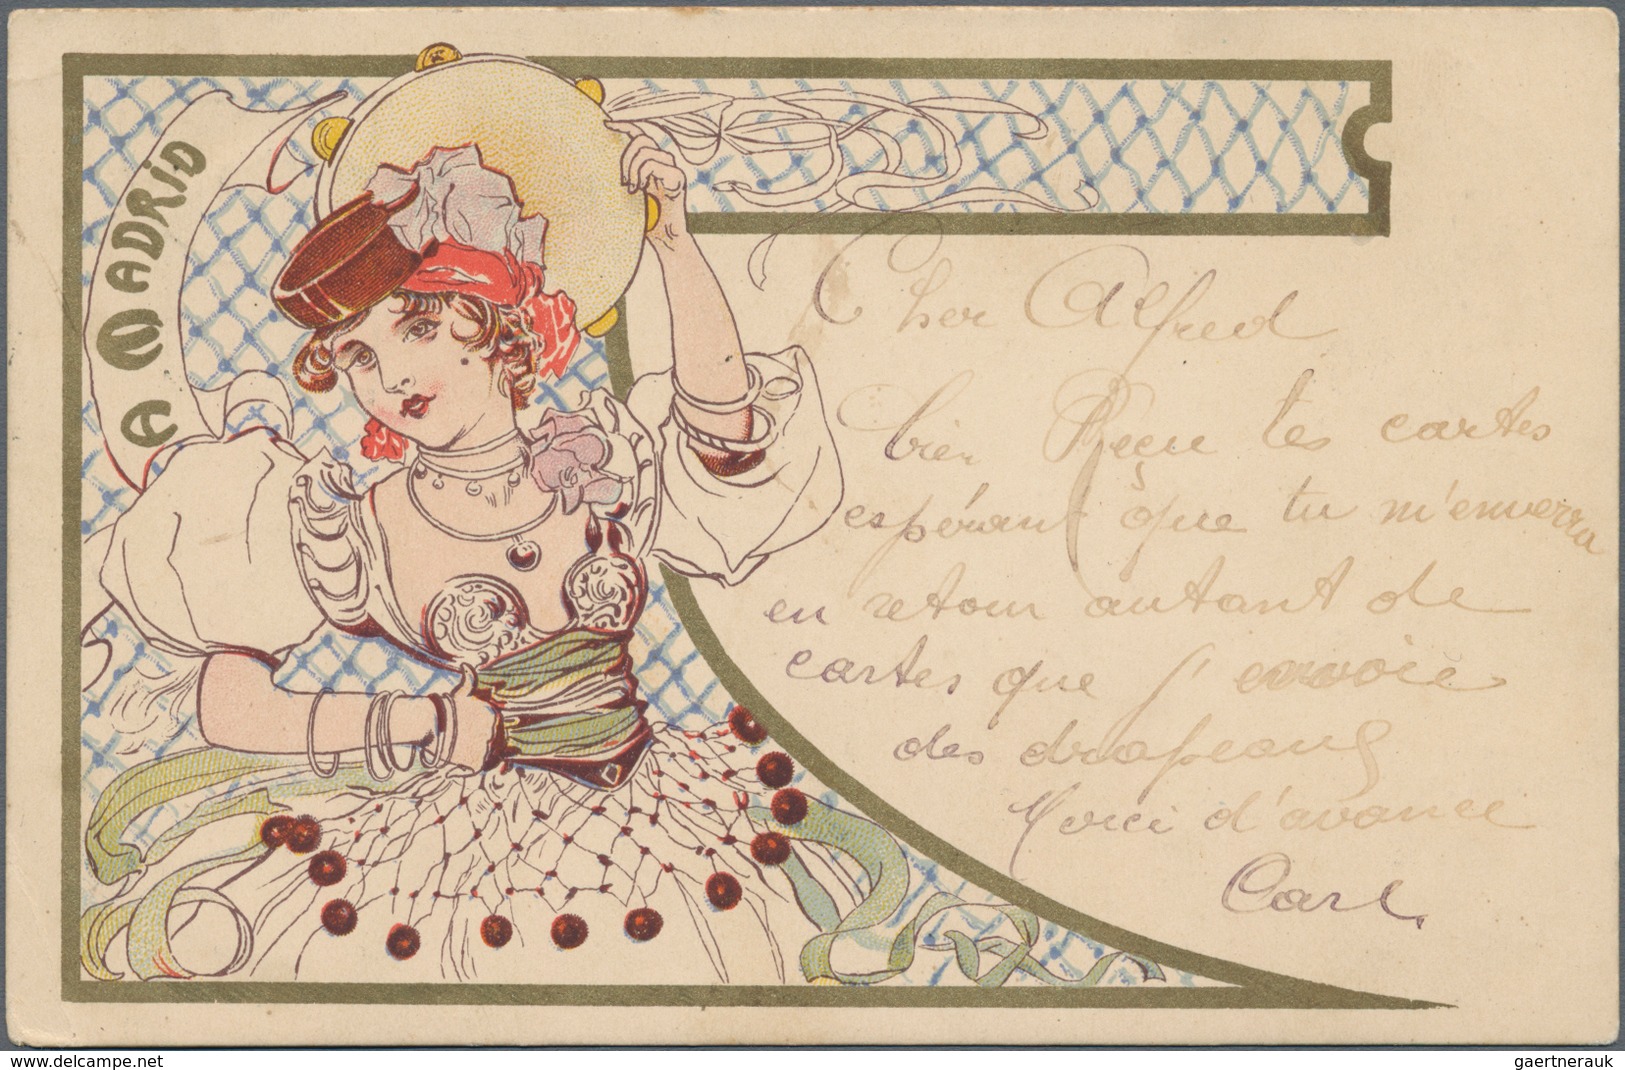 A MADRID
Cher Alfred
bien Reçu tes cartes
espérant que tu m'enverra
en retour autant de
cartes que j'envoie
des drapeaux
Merci d'avance
Carl,
www.delcampe.net
gaertnerauk